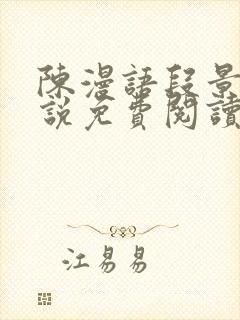 陳漫語段景
說免費閱讀
江易易